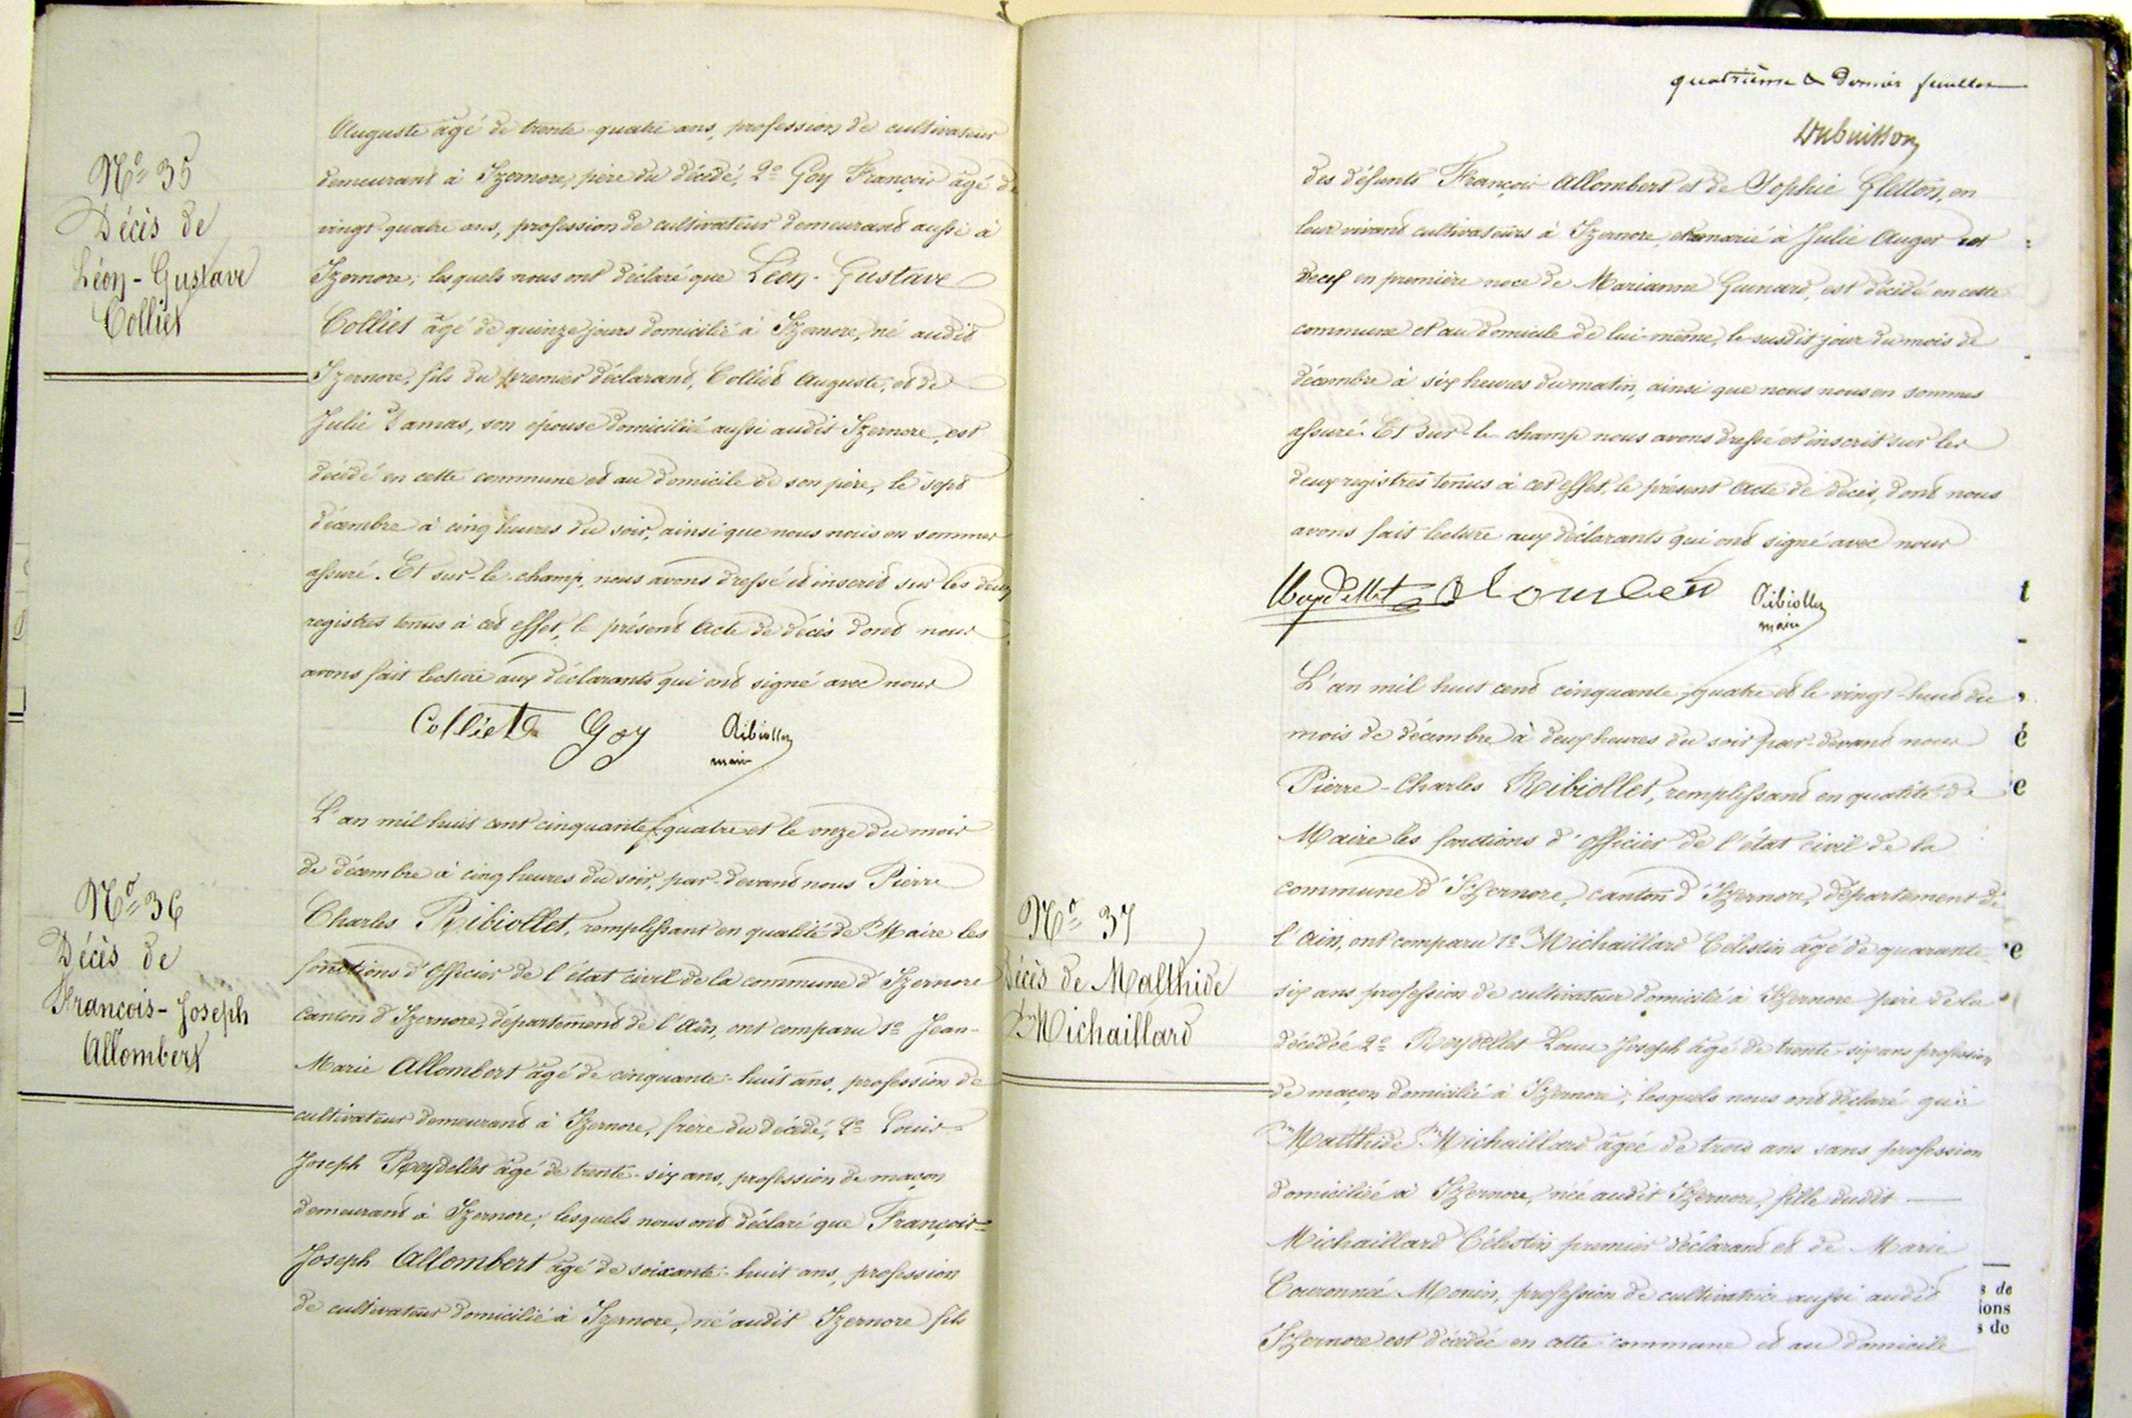 N° 35
Décès de
Léon-Gustave
Colliet
Auguste âgé de trente quatre ans, profession de cultivateur
demeurant à Izernore, père du décédé, 2° Goy François âgé de
vingt-quatre ans, profession de cultivateur demeurant aussi à
Izernore; lesquels nous ont déclaré que Léon-Gustave
Colliet âgé de quinze jours domicilié à Izernore, né audit
Izernore, fils du premier déclarant, Colliet Auguste, et de
Julie Damas, son épouse domiciliée aussi audit Izernore, est
décédé en cette commune et au domicile de son père, le sept
décembre à cinq heures du soir, ainsi que nous nous en sommes
assuré. Et sur-le-champ, nous avons dressé et inscrit sur les deux
registres tenus à cet effet, le présent Acte de décès dont nous
avons fait lecture aux déclarants qui ont signé avec nous
Colliet Goy Ribiollet
maire
N° 36
Décès de
François-Joseph
Allombert
L'an mil huit cent cinquante-quatre et le onze du mois
de décembre à cinq heures du soir, par-devant nous Pierre
Charles Ribiollet, remplissant en qualité de Maire les
fonctions d'Officier de l'état civil de la commune d'Izernore
canton d'Izernore, département de l'Ain, ont comparu 1° Jean-
Marie Allombert âgé de cinquante-huit ans, profession de
cultivateur demeurant à Izernore, frère du décédé, 2° Louis-
Joseph Reydellet âgé de trente-six ans, profession de maçon
demeurant à Izernore; lesquels nous ont déclaré que François-
Joseph Allombert âgé de soixante-huit ans, profession
de cultivateur domicilié à Izernore, né audit Izernore fils
quatrième & dernier feuillet
Dubuisson
des défunts François Allombert et de Sophie Gletton, en
leur vivant cultivateurs à Izernore, et marié à Julie Auger et
veuf en première noce de Marianne Guinard, est décédé en cette
commune et au domicile de lui-même, le susdit jour du mois de
décembre à six heures du matin, ainsi que nous nous en sommes
assuré. Et sur-le-champ nous avons dressé et inscrit sur les
deux registres tenus à cet effet, le présent Acte de décès, dont nous
avons fait lecture aux déclarants qui ont signé avec nous
Reydellet Alombert Ribiollet
maire
N° 37
Décès de Malthide
Michaillard
L'an mil huit cent cinquante-quatre et le vingt-huit du
mois de décembre à deux heures du soir par-devant nous
Pierre-Charles Ribiollet, remplissant en qualité de
Maire les fonctions d'Officier de l'état civil de la
commune d'Izernore, canton d'Izernore, département de
l'Ain, ont comparu 1° Michaillard Célestin âgé de quarante
six ans profession de cultivateur domicilié à Izernore père de la
décédée 2° Reydellet Louis Joseph âgé de trente-six ans profession
de maçon domicilié à Izernore; lesquels nous ont déclaré que
Malthide Michaillard âgée de trois ans sans profession
domiciliée à Izernore, née audit Izernore, fille dudit
Michaillard Célestin premier déclarant et de Marie
Couronnée Monin, profession de cultivatrice aussi audit
Izernore est décédée en cette commune et au domicile
s de
ions
s de